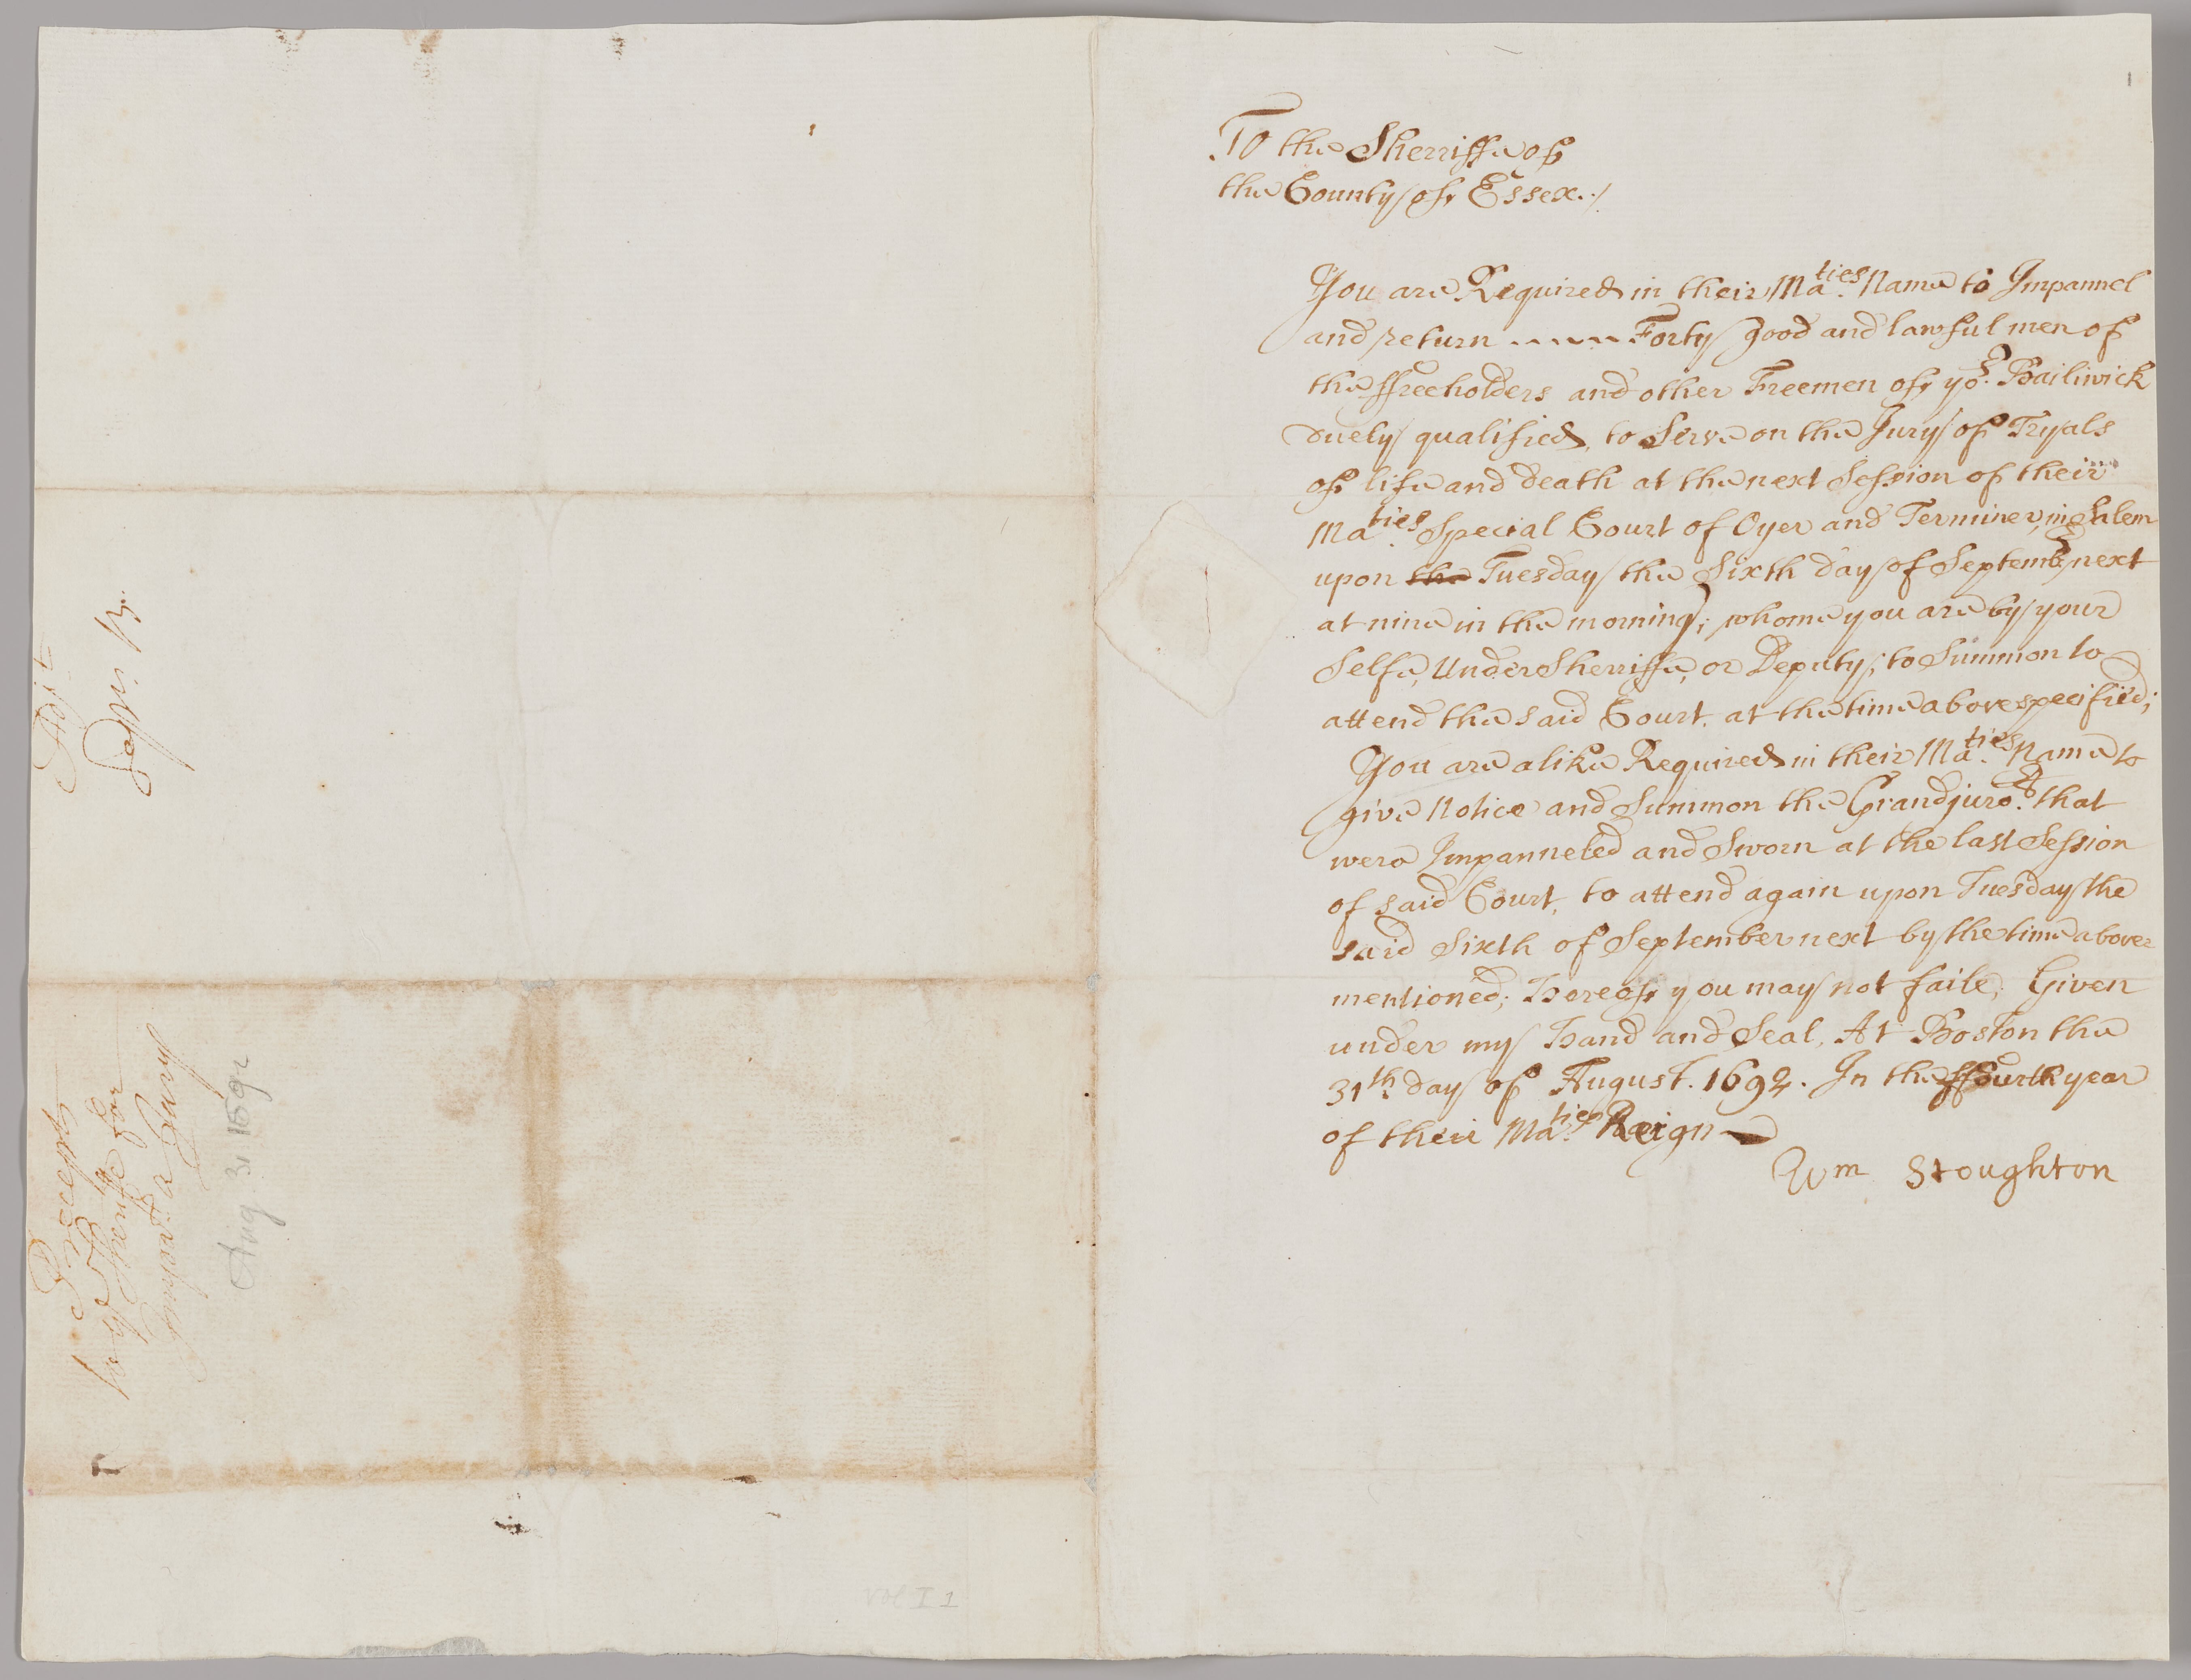 To the Sherriffe of
the County of Essex./
You are Required in their Ma.ties Name to Impannel
and return ----- Forty good and lawful men of
the ffreeholders and other Freemen of yor. Bailiwick
duely qualified, to Serve on the Jury of Tryals
of life and death at the next Session of their
Ma.ties Special Court of Oyer and Terminer, in Salem
upon the Tuesday the Sixth day of Septembr next
at nine in the morning; whome you are by your
Selfe, Under Sherriffe, or Deputy; to Summon to
attend the said Court, at the time above specified;
You are alike Required in their Ma.ties Name to
give Notice and Summon the Grandjuro.rs that
were Impanneled and Sworn at the last Session
of said Court, to attend again upon Tuesday the
said Sixth of September next by the time above
mentioned; Hereof you may not faile, Given
under my Hand and Seal, At Boston the
31th day of August. 1692. In the ffourth year
of their Ma.ties Reign
Wm Stoughton
Precept
to ye Sheriffe for
a Jury
Aug. 31 1692
Vol I 1